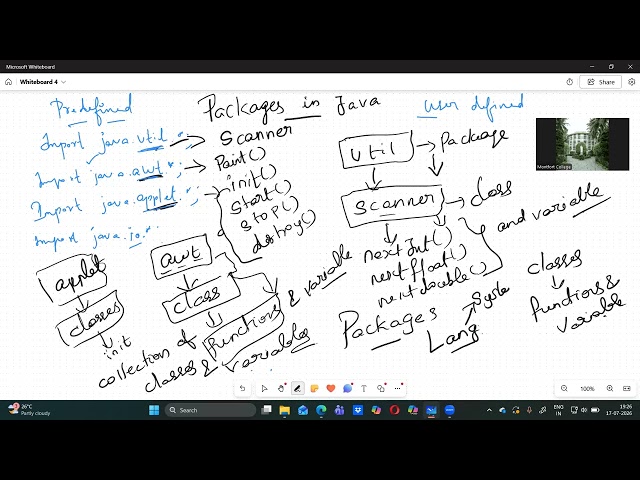 Microsoft Whiteboard
Whiteboard 4
Share
Predefined
Packages in Java
User defined
Import java.util.*;
Scanner
Import java.awt.*;
Paint()
Import java.applet.*;
init()
start()
stop()
destroy()
Import java.io.*
util
Package
Scanner
class
nextInt()
nextfloat()
nextdouble()
and variable
Montfort College
applet
classes
init
awt
class
functions & variable
collection of
classes & variables
Packages
Lang
Syste
classes
functions &
variable
100%
26°C
Partly cloudy
Search
ENG
IN
19:26
17-07-2026